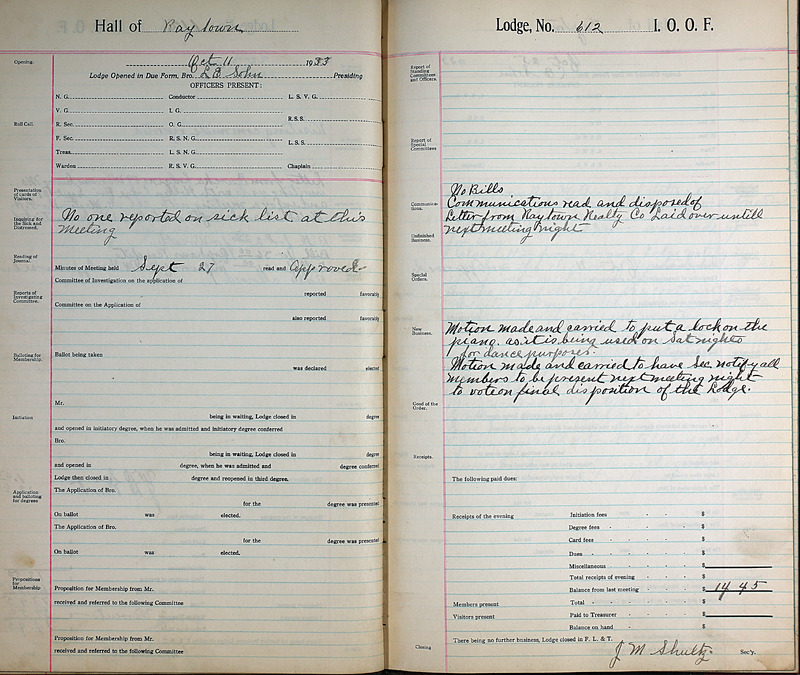 Hall of Raytown
Oct 11 1933
Opening.
Lodge Opened in Due Form, Bro. L B Sohn Presiding
OFFICERS PRESENT:
Roll Call.
N. G. Conductor L. S. V. G.
V. G. I. G.
R. S. S.
R. Sec. O. G.
F. Sec. R. S. N. G.
L. S. S.
Treas. L. S. N. G.
Warden R. S. V. G. Chaplain
Presentation of cards of Visitors.
Inquiring for the Sick and Distressed.
No one reported on sick list at this
meeting
Reading of Journal.
Minutes of Meeting held Sept 27 read and approved
Committee of Investigation on the application of
Reports of Investigating Committee.
reported favorably
Committee on the Application of
also reported favorably
Balloting for Membership.
Ballot being taken
was declared elected
Mr.
Initiation
being in waiting, Lodge closed in degree
and opened in initiatory degree, when he was admitted and initiatory degree conferred
Bro.
being in waiting, Lodge closed in degree
and opened in degree, when he was admitted and degree conferred
Lodge then closed in degree and reopened in third degree.
Application and balloting for degrees
The Application of Bro.
for the degree was presented
On ballot was elected.
The Application of Bro.
for the degree was presented
On ballot was elected.
Propositions for Membership
Proposition for Membership from Mr.
received and referred to the following Committee
Proposition for Membership from Mr.
received and referred to the following Committee
Lodge, No. 612 I. O. O. F.
Report of Standing Committees and Officers.
Report of Special Committees
No Bills
Communications.
Communications read and disposed of
Letter from Raytown Realty Co Laid over untill
next meeting night
Unfinished Business.
Special Orders.
New Business.
Motion made and carried to put a lock on the
piano. as it is being used on Sat nights
for dance purposes.
Motion made and carried to have Sec notify all
members to be present next meeting night
to vote on final disposition of the Lodge.
Good of the Order.
Receipts.
The following paid dues:
Receipts of the evening Initiation fees $
Degree fees $
Card fees $
Dues $
Miscellaneous $
Total receipts of evening $
Balance from last meeting $ 14 45
Members present Total $
Visitors present Paid to Treasurer $
Balance on hand $
Closing
There being no further business, Lodge closed in F. L. & T.
J M Shultz Sec'y.